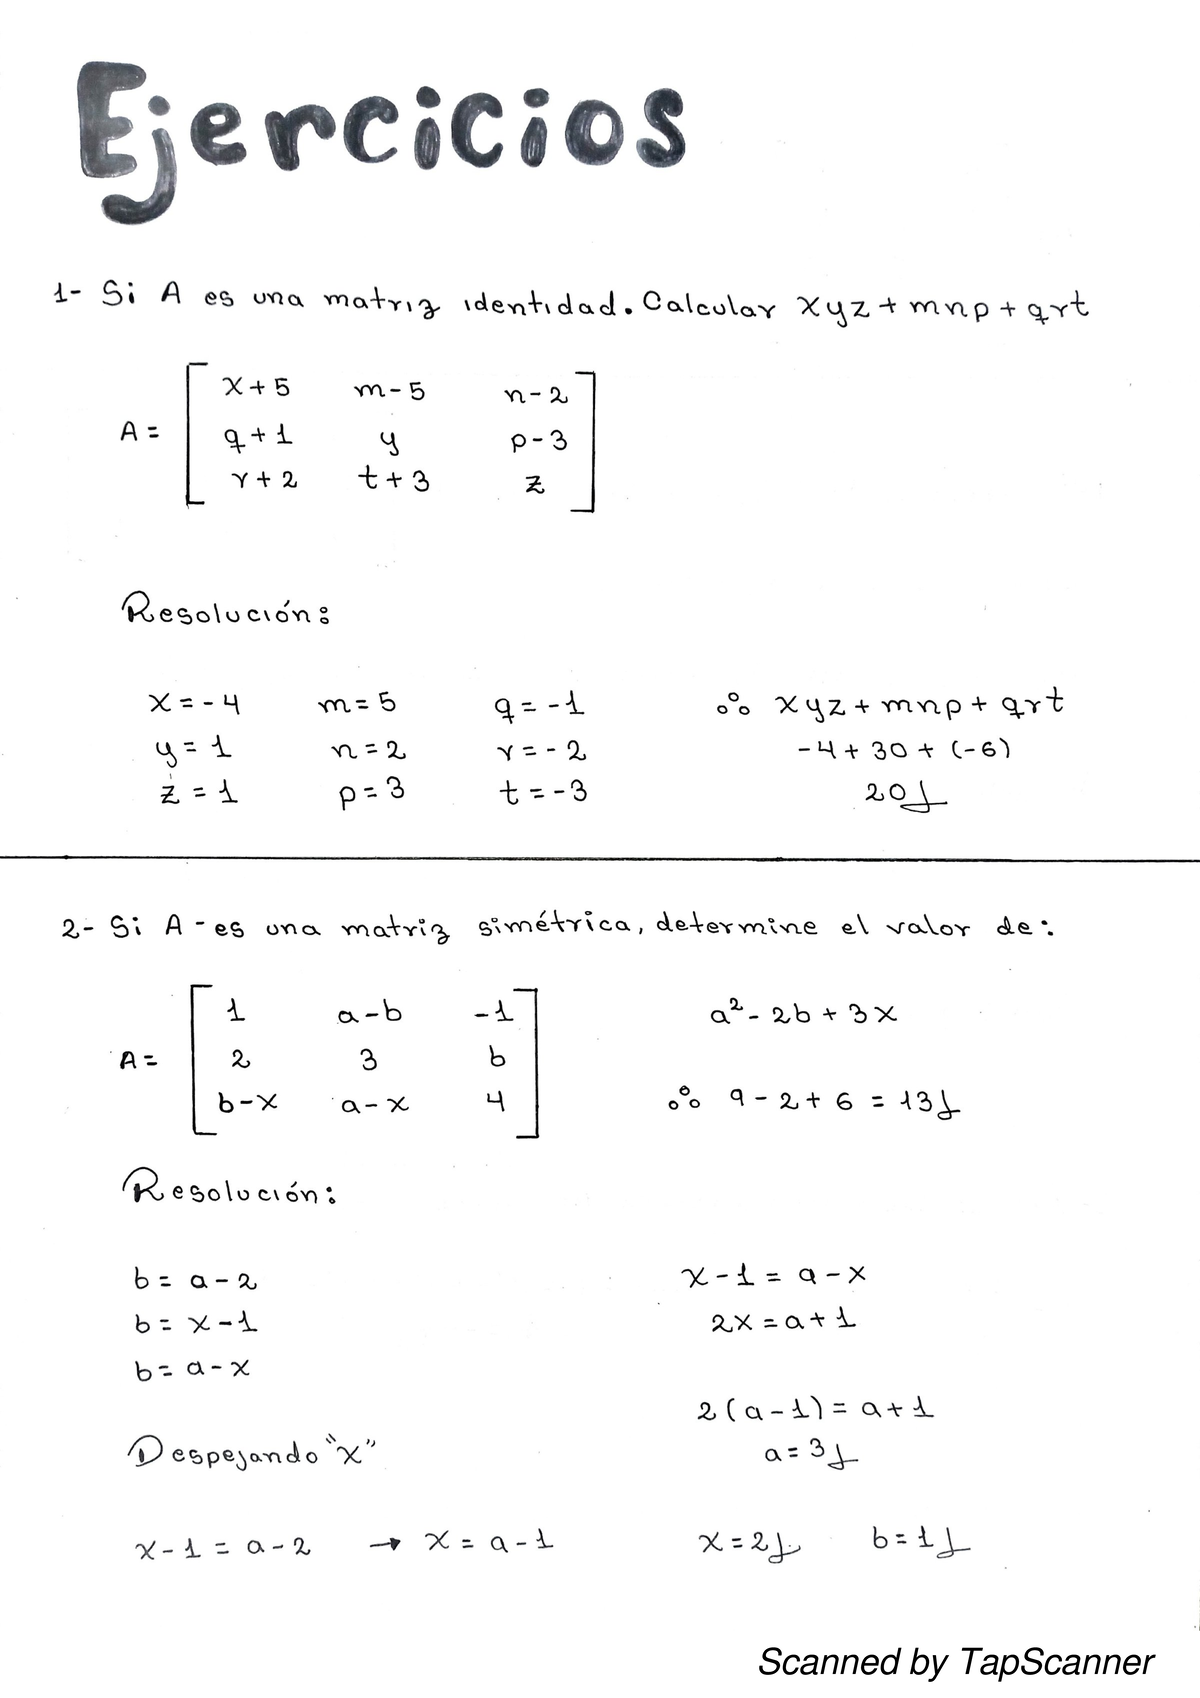 Ejercicios
1- Si A es una matriz identidad. Calcular xyz + mnp + qrt
x+5 m-5 n-2
A = q+1 y p-3
r+2 t+3 z
Resolución:
x = -4 m = 5 q = -1 ∴ xyz + mnp + qrt
y = 1 n = 2 r = -2 -4 + 30 + (-6)
z = 1 p = 3 t = -3 20
2- Si A - es una matriz simétrica, determine el valor de:
1 a-b -1 a² - 2b + 3x
A = 2 3 b
b-x a-x 4 ∴ 9 - 2 + 6 = 13
Resolución:
b = a - 2 x - 1 = a - x
b = x - 1 2x = a + 1
b = a - x
2(a-1) = a + 1
Despejando "x" a = 3
x - 1 = a - 2 → x = a - 1 x = 2 b = 1
Scanned by TapScanner